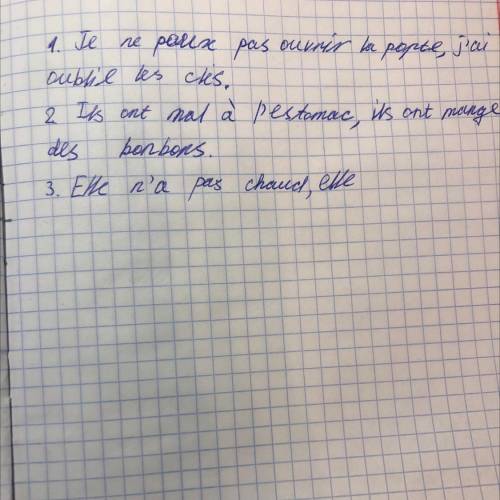 1. Je ne peux pas ouvrir la porte, j'ai
oublié les clés.
2 Ils ont mal à l'estomac, ils ont mangé
des bonbons.
3. Elle n'a pas chaud, elle